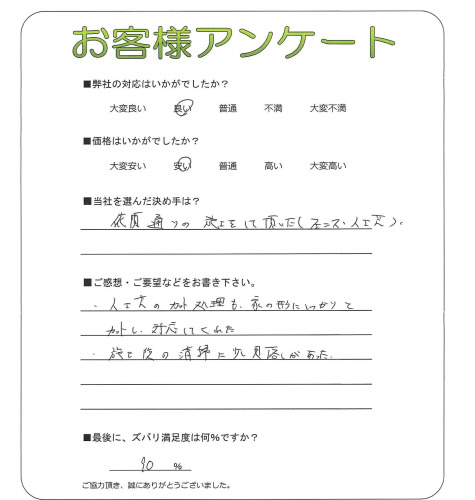 お客様アンケート
■弊社の対応はいかがでしたか？
大変良い 良い 普通 不満 大変不満
■価格はいかがでしたか？
大変安い 安い 普通 高い 大変高い
■当社を選んだ決め手は？
依頼通りの施工をして頂いた(フェンス・人工芝)。
■ご感想・ご要望などをお書き下さい。
・人工芝のカット処理も、家の形にしっかりと
カットし、対応してくれた
・施工後の清掃に少し見落しがあった。
■最後に、ズバリ満足度は何％ですか？
90 ％
ご協力頂き、誠にありがとうございました。